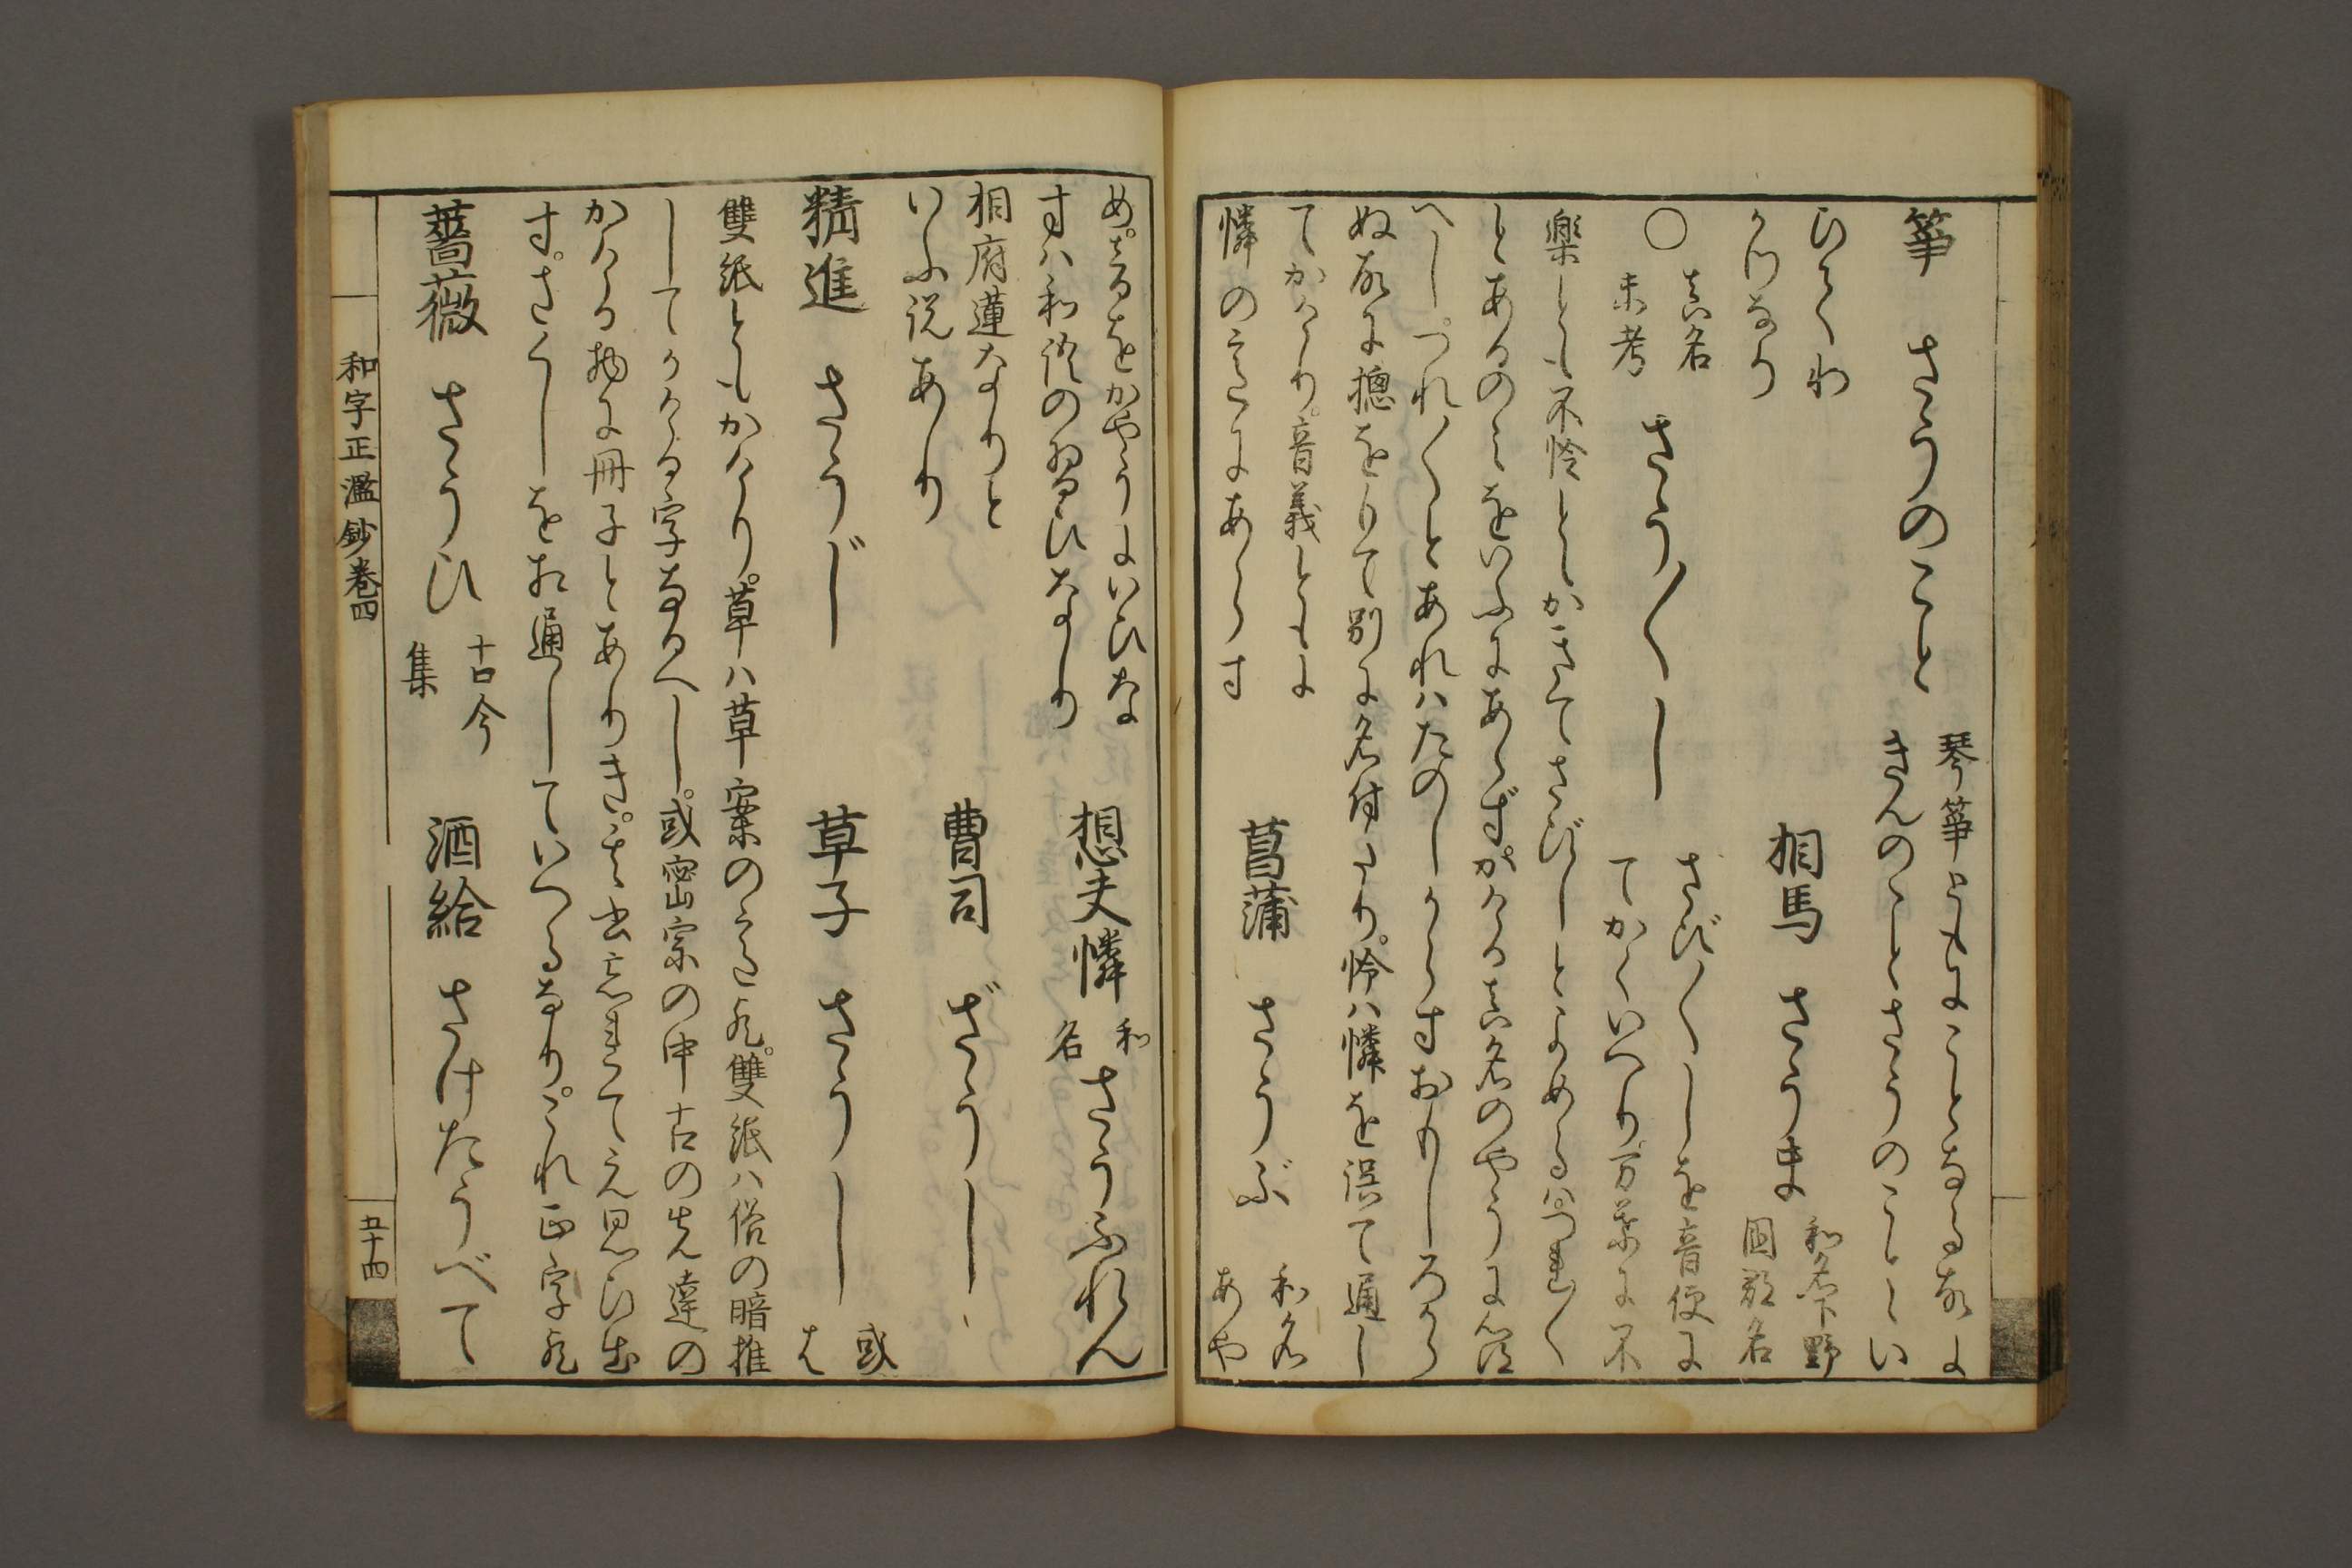 箏　さうのこと
琴箏ともにことなる故に
きんのことさうのことゝい
ひてわ
かつなり
相馬　さうま
和名下野
國郡名
○
真名
未考
さう〳〵し
さび〳〵しを音便に
てかくいへり。万葉に不
楽とも不怜ともかきてさびしとよめるは。つれ〳〵
とあるのみをいふにあらず。かける真名のやうに心得
へし。つれ〳〵とあれはたのしからすおもしろから
ぬ故に揔をもて別に名付たり。怜ハ憐を誤て通し
てかけり。音義ともに
憐のことにあらす
菖蒲　さうぶ
和名
あや
め。きるをかやうにいひな
すハ和語の習ひなり
想夫憐
和
名
さうふれん
相府蓮なりと
いふ説あり
曹司　ざうし
精進　さうじ
草子　さうし
或
は
雙紙ともかけり。草ハ草案のこと歟。雙紙ハ俗の暗推
してかける字なるへし。或密宗の中古の先達の
かける物に冊子とありき。其書忘れてえ思ひ出
す。さくしをお通していへるなり。これ正字歟
薔薇　さうひ
古今
集
酒給　さけたうべて
和字正濫鈔巻四
五十四